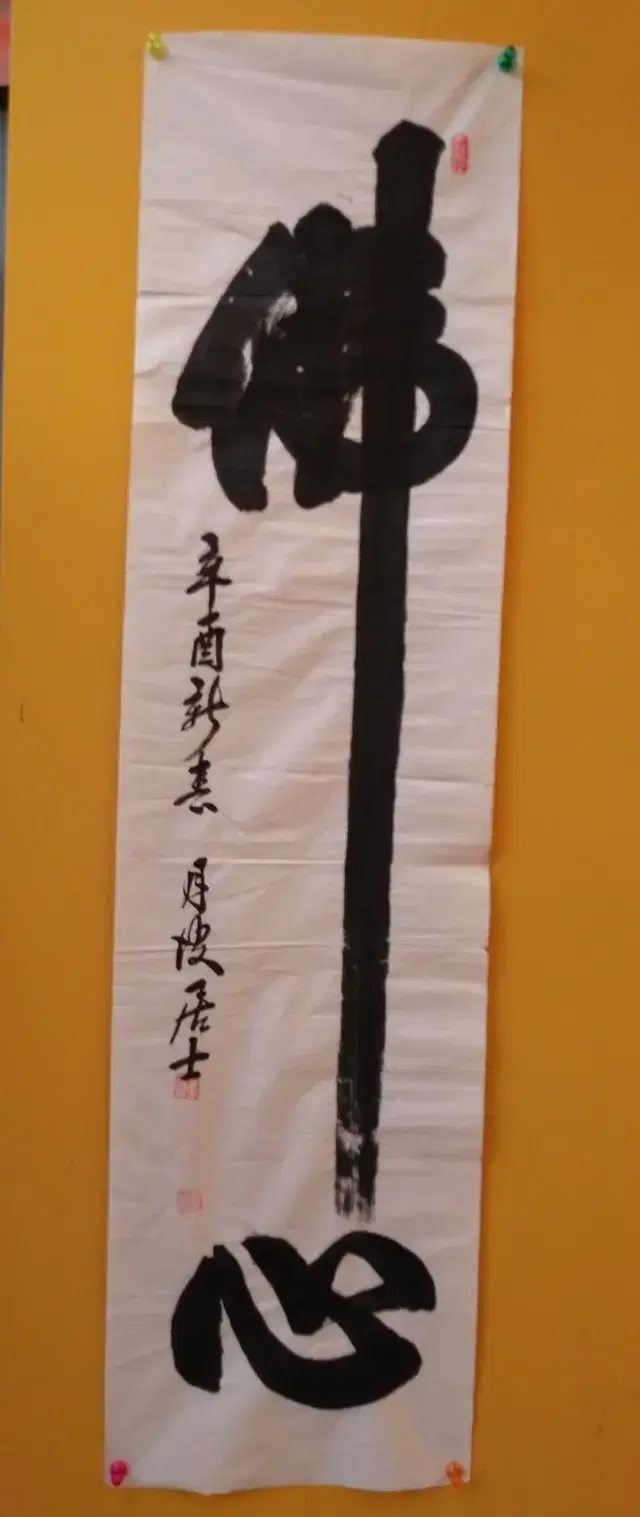 佛心
辛酉新春 月居士